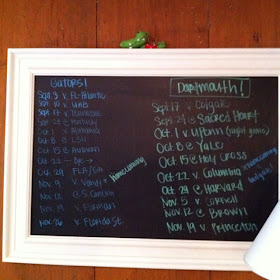 Gators!
Sept. 3 v FL-Atlantic
Sept 10 v UAB
Sept 17 v Tennessee
Sept 24 @ Kentucky
Oct 1 v Alabama
Oct 8 @ LSU
Oct 15 @ Auburn
Oct 22 - Bye -
Oct 29 FLA/GA
Nov. 5 v Vandy
homecoming
Nov 12 @ S. Carolina
Nov 19 v Furman
Nov 26 v Florida St.
Dartmouth!
Sept 17 v Colgate
Sept 24 @ Sacred Heart
Oct 1 v UPenn (night game)
Oct 8 @ Yale
Oct 15 @ Holy Cross
Oct 22 v Columbia
homecoming
Oct 29 @ Harvard
Nov 5 v Cornell
Nov 12 @ Brown
Nov 19 v Princeton